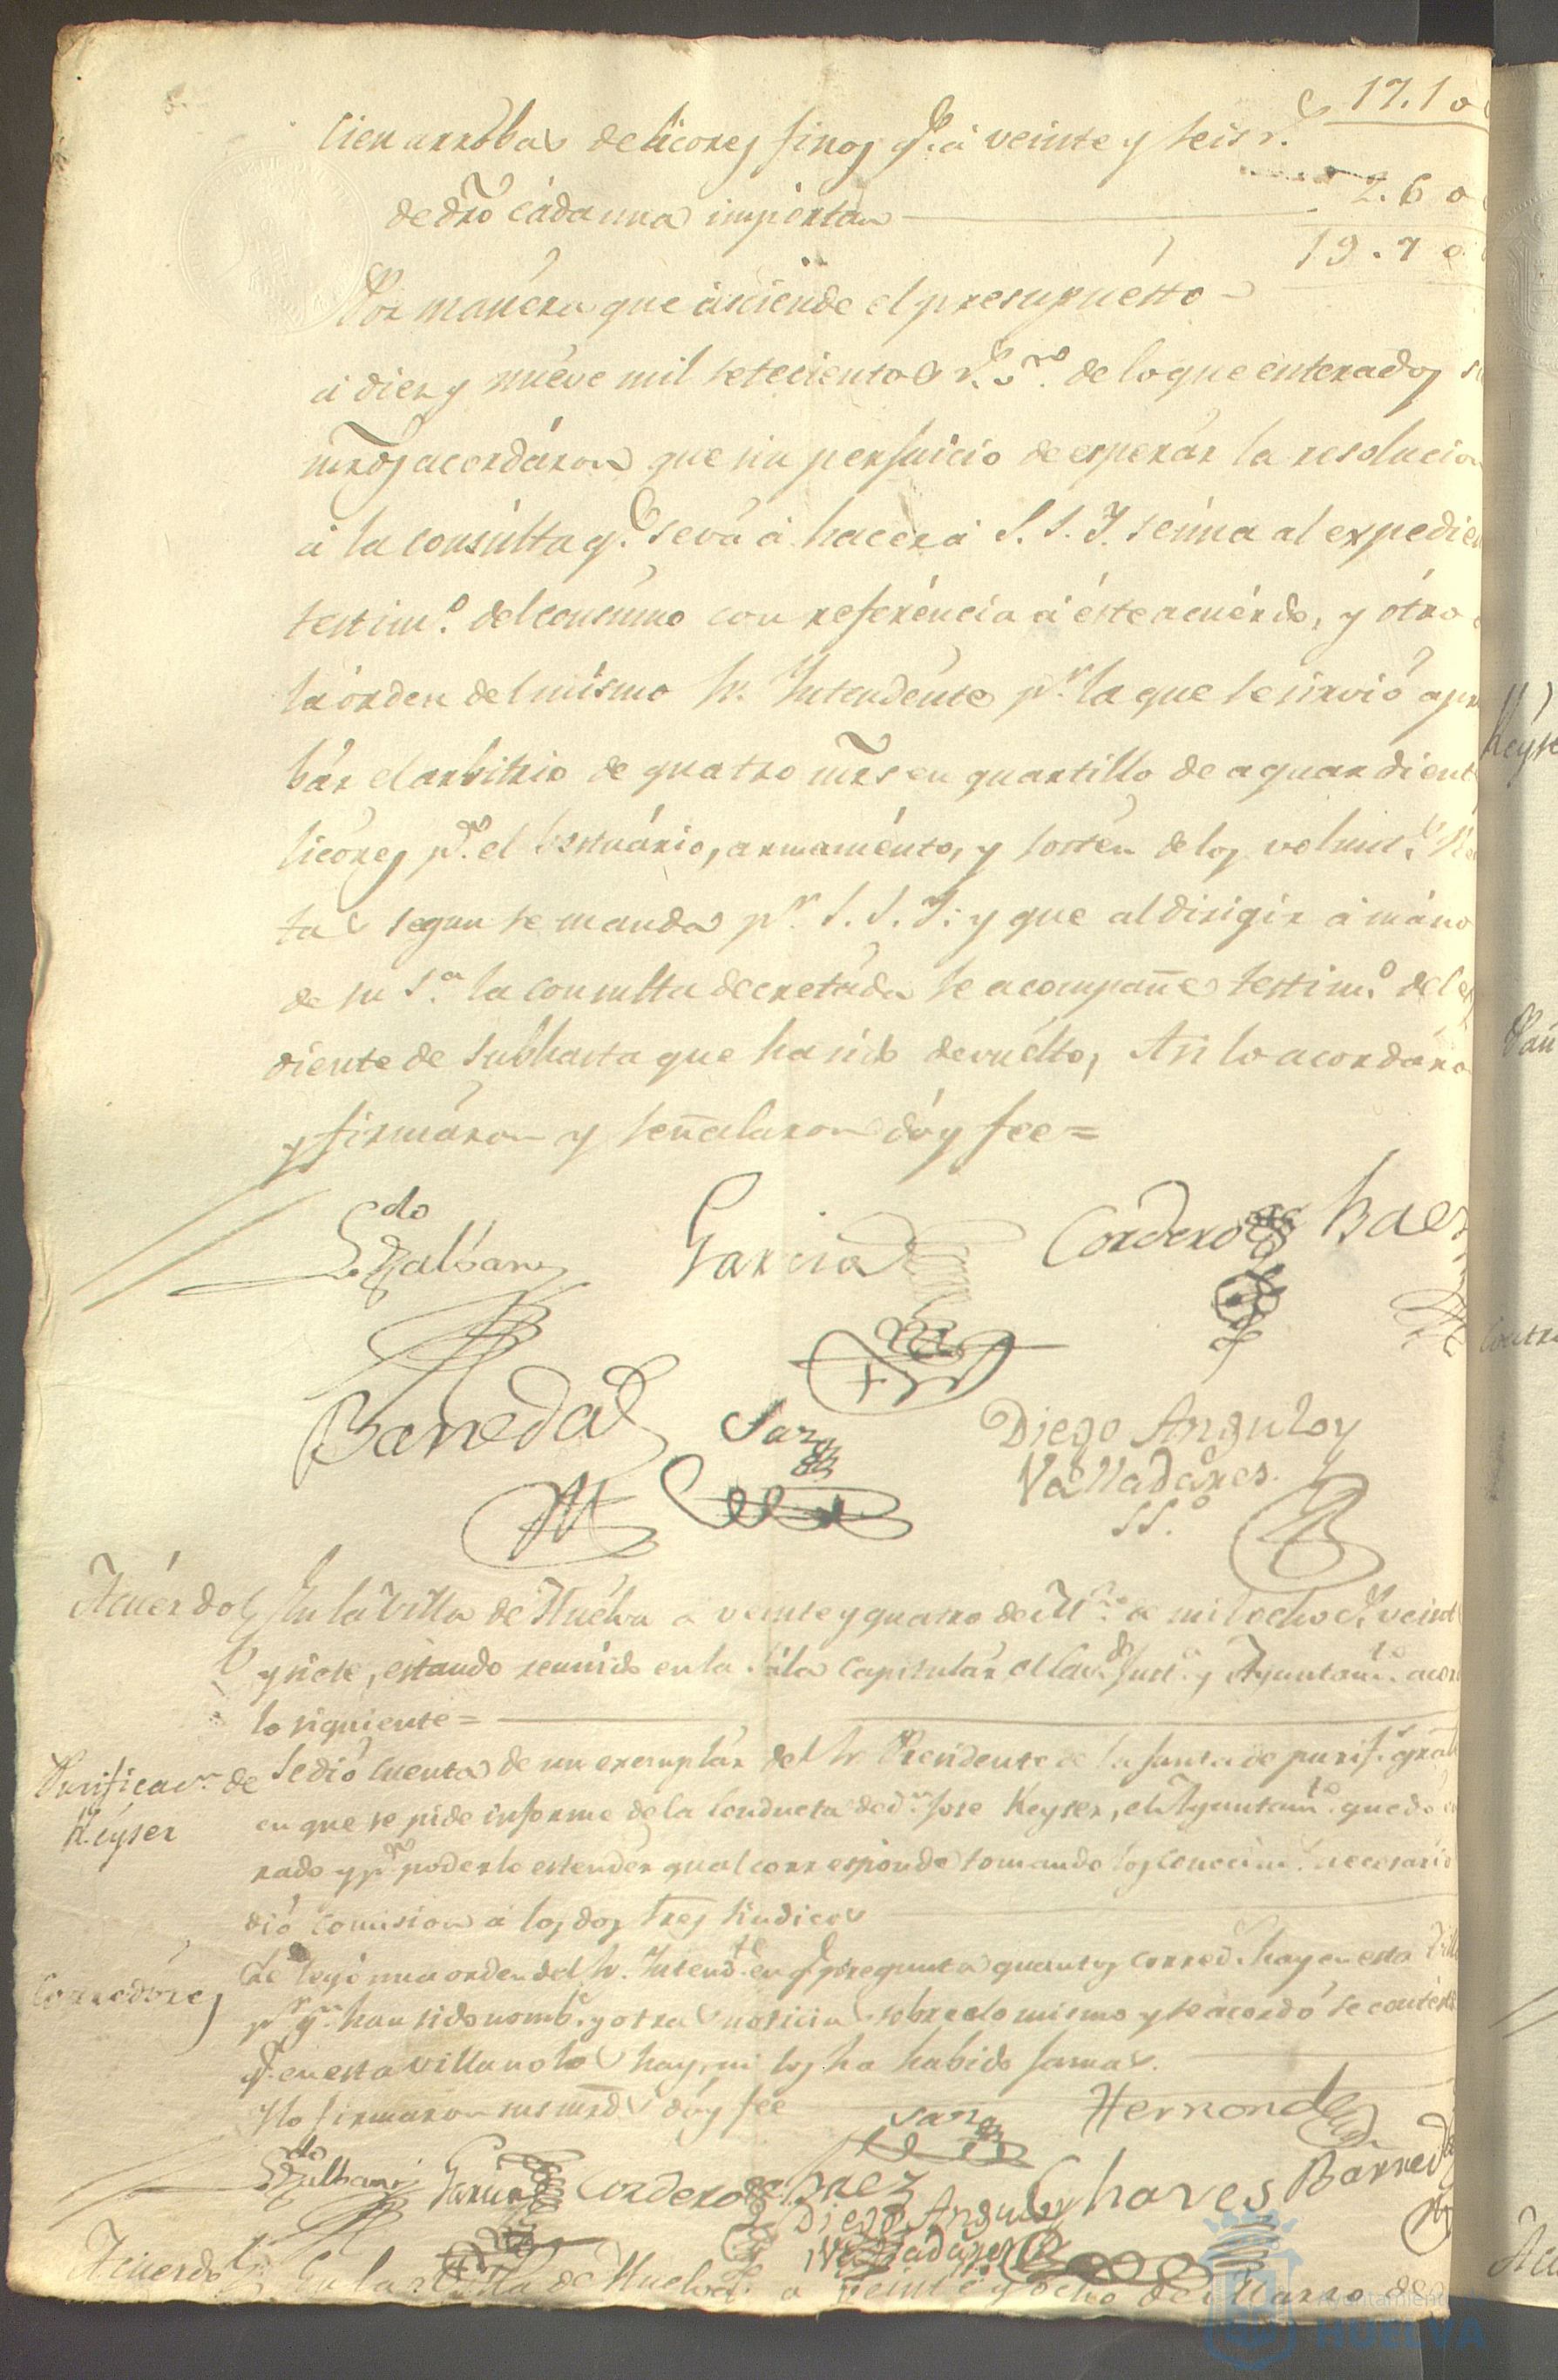 17.10
Cien arrobas de licores finos q.e á veinte y seis r.s
2.60
de dro cáda una importan
19.70
Por manéra que asciende el presupuésto
á diez y nuéve mil setecientos r.s v.n de lo que enterados s
mrds acordáron que sin perjuicio de esperár la resolucion
á la consúlta q.e se vá á hacer á S. S. Y. se úna al expedien
testim.o del consúmo con referéncia á éste acuérdo, y ótro
la órden del mísmo Sr. Intendénte p.r la que se sirvió apro
bár el arbítrio de quatro mrs en quartillo de aguardient
licóres p.a el Vestuário, armaménto, y sostén de los volunt.s Rea
tas segun se manda p.r S. S. Y. y que al dirigír á máno
de su S.a la consulta decretáda se acompañe testim.o del es
diente de subhasta que ha sido devuélto, Asi lo acordáro
y firmáron y señalaron dóy fee=
L.do Galban García Cordero Baez
Barreda Sanz Diego Angulo y
Valladáres.
SS.o
Acuérdo En la Villa de Huélva á veinte y quatro de M.zo de mil ocho c.s veint
y siete, estando reunido en la Sála Capitulár el Cav.do Just.a y Ayuntam.to acor
lo siguiente=
Purificac.n de Se dió cuenta de un exemplár del Sr. Presidente de la Junta de purif.s grál
Kéyser en que se pide informe de la Conducta de d.n Jose Keyser, el Ayuntam.to quedó en
rado y p.a poderlo estendér qual corresponde tomando los conocim.s necesário
dió comision á los dos Sres Sindicos
Corredóres Se leyó una orden del Sr. Intend.te en q.e pregunta quantos corred.s hay en esta Villa
p.r q.n han sido nomb.s y otras noticias sobre lo mismo y se acordó se contéste
q.e en esta villa no los hay, ni los ha habido jamas.
Y lo firmaron sus mrds dóy fee
Sanz Hernandez
L.do Galban García Cordero Baez Chaves Barreda
Diego Angulo y
Valladáres
Acuerdo En la Villa de Huelva á veinte y ocho de Marzo de
Keyse
Ayuntamiento
HUELVA